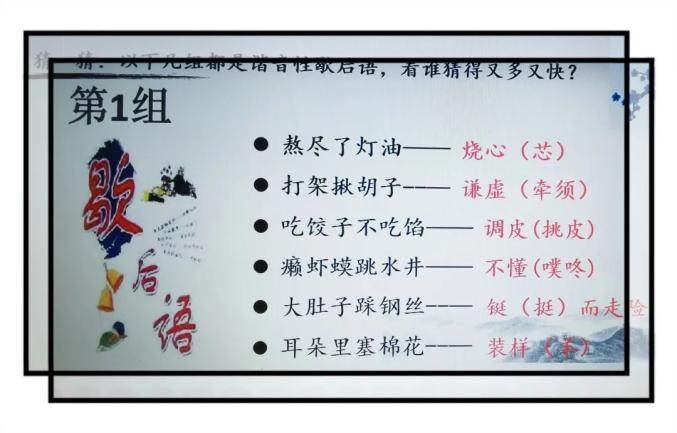 猜一猜:以下几组都是谐音性歇后语,看谁猜得又多又快?
第1组
歇后语
●熬尽了灯油——烧心(芯)
●打架揪胡子----谦虚(牵须)
●吃饺子不吃馅——调皮(挑皮)
●癞虾蟆跳水井——不懂(噗咚)
●大肚子踩钢丝----铤(挺)而走险
●耳朵里塞棉花----装样(羊)